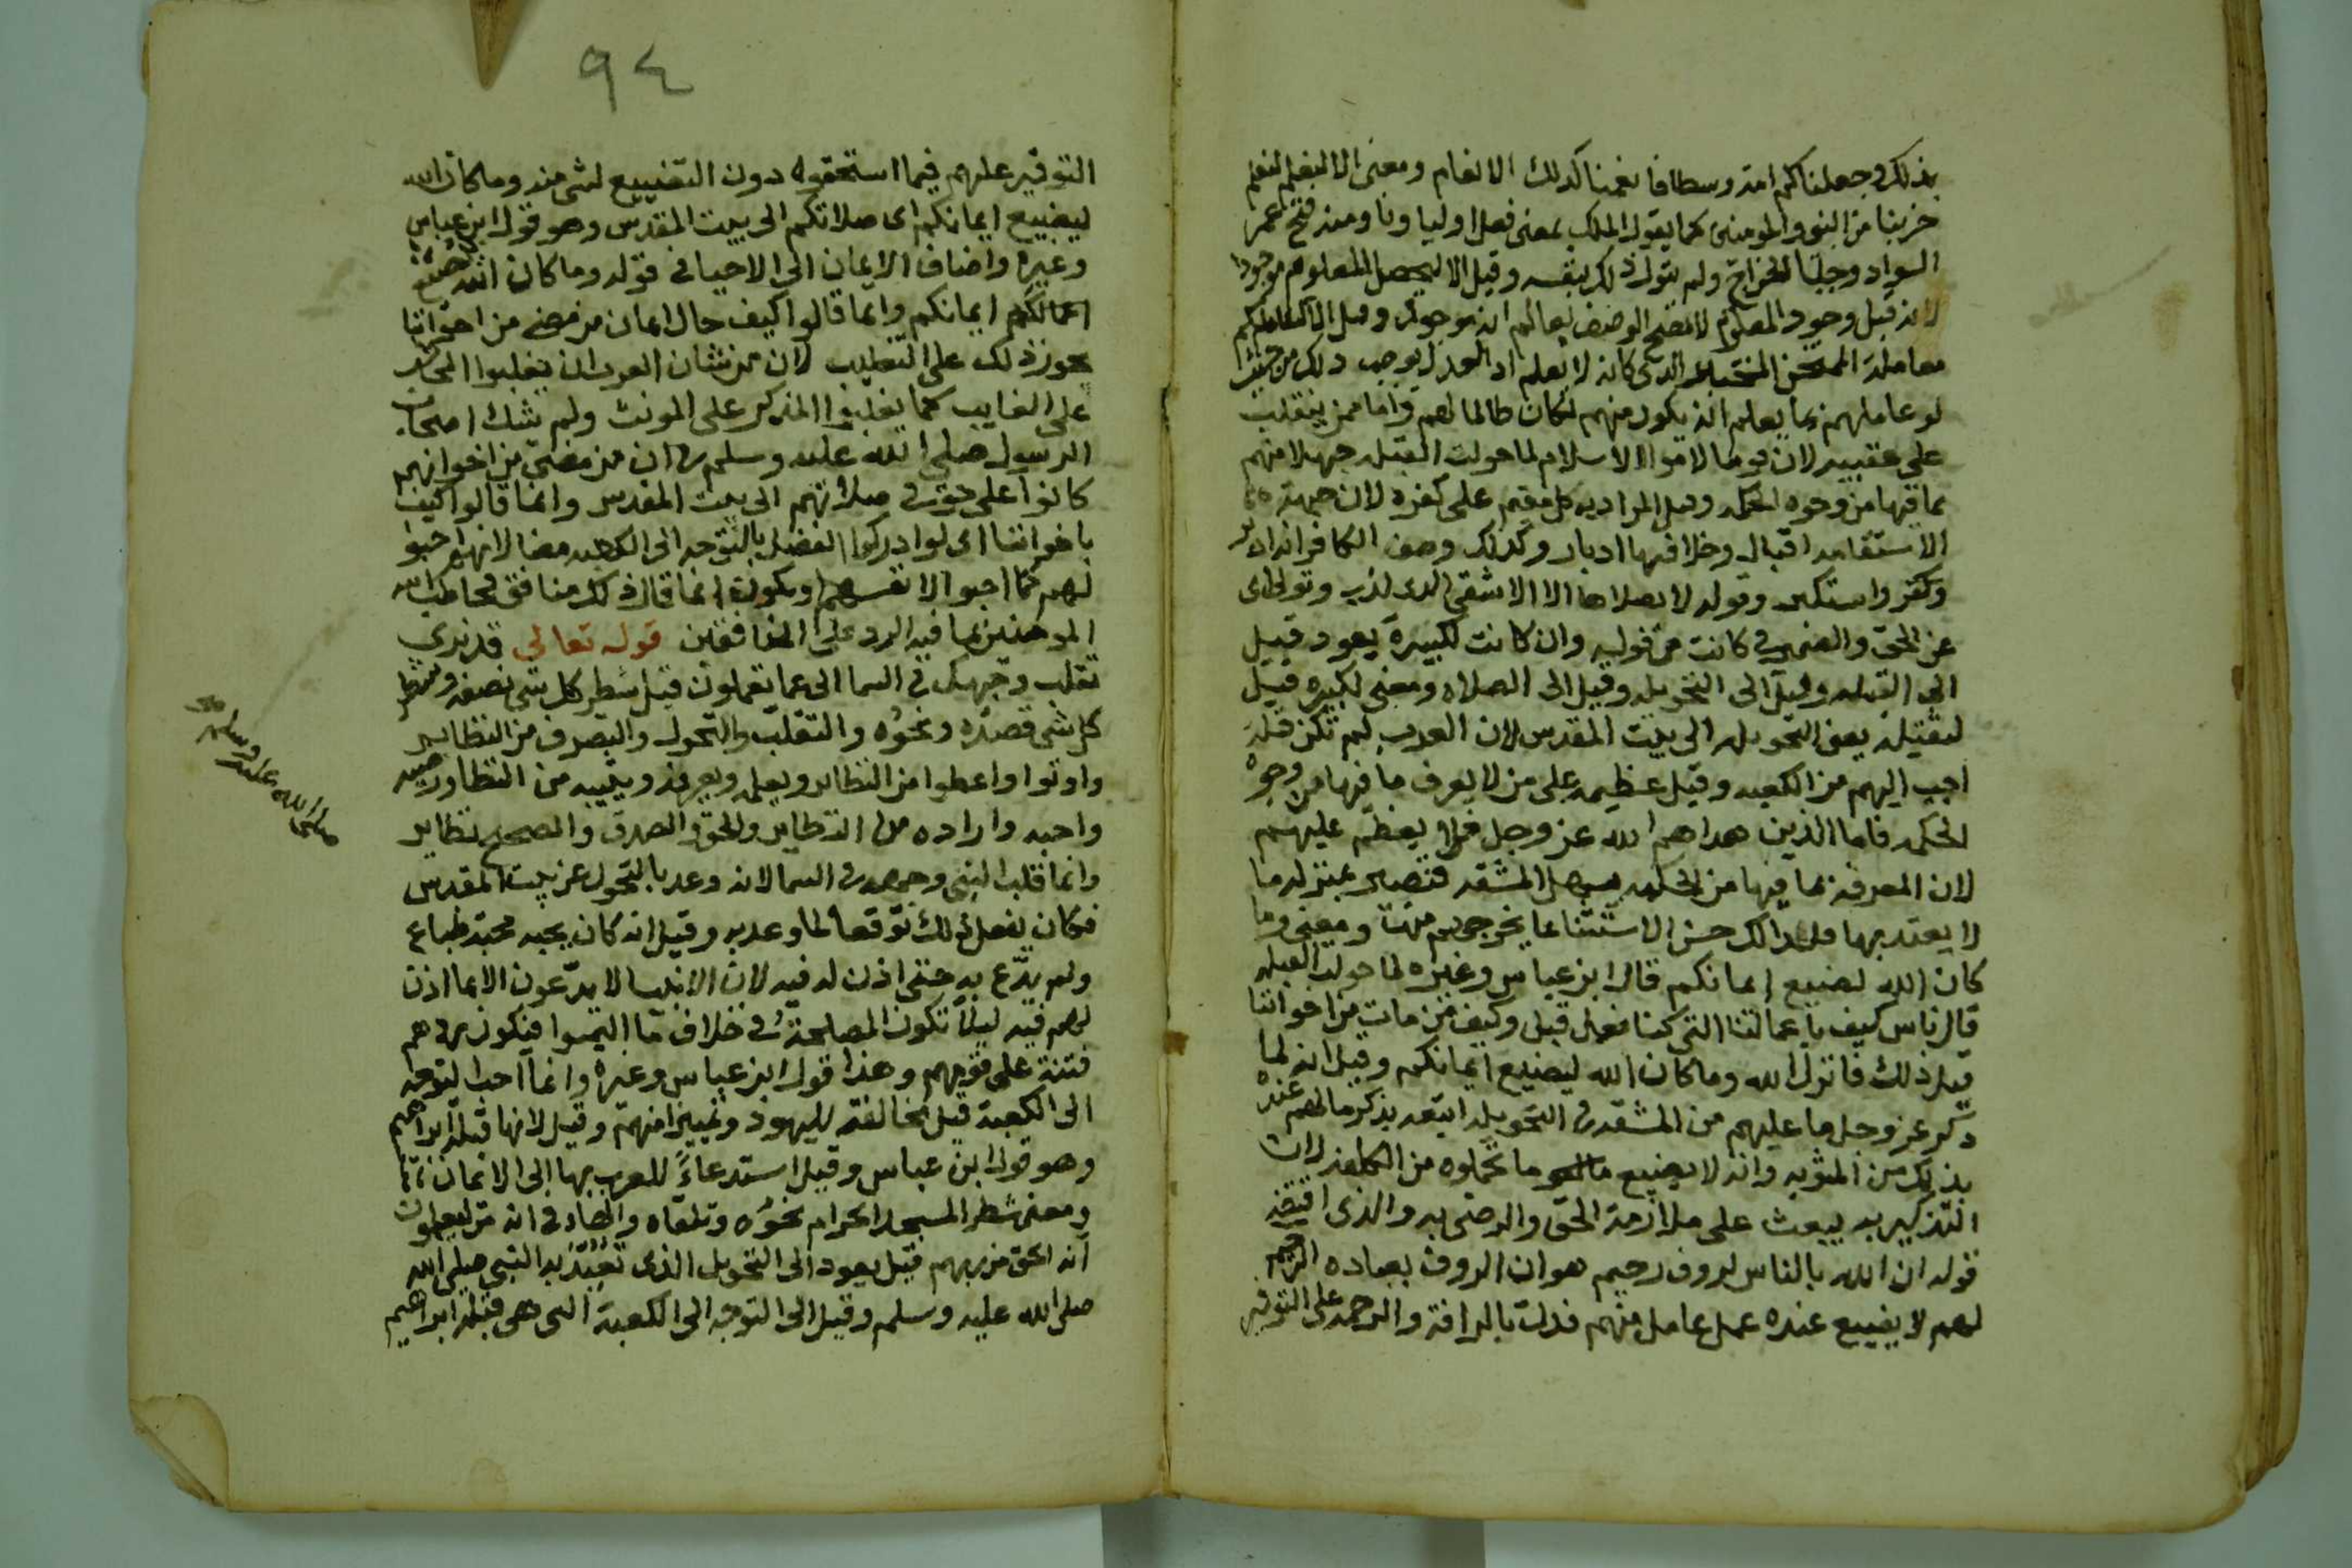 بذلك وجعلناكم امة وسطا فانعمنا كذلك الانعام ومعنى الا لنعلم لنعلم
حزبنا من النبي والمومنين كما يقول الملك بمعنى فعل اوليا ونا ومنه فتح عمر
السواد وجبا الخراج ولم يتول ذلك بنفسه وقيل الا ليحصل المعلوم موجودا
لانه قبل وجود المعلوم لا يصح الوصف بعالم انه موجود وقيل الا لنعاملكم
معاملة الممتحن المختبر الذي كانه لا يعلم اذ العدل يوجب ذلك من حيث
لو عاملهم بما يعلم انه يكون منهم لكان ظالما لهم واما ممن ينقلب
على عقبيه لان قوما لاموا الاسلام لما حولت القبلة جهلا منهم
بما فيها من وجوه الحكمة وقيل المراد به كل مقيم على كفره لان جهة
الاستقامة اقبال وخلافها ادبار وكذلك وصف الكافر انه ادبر
وكفر واستكبر وقوله لا يصلاها الا الاشقى الذي كذب وتولى اي
عن الحق والضمير في كانت من قوله وان كانت لكبيرة يعود قيل
الى القبلة وقيل الى التحويلة وقيل الى الصلاة ومعنى لكبيرة قيل
لثقيلة يعني التحويلة الى بيت المقدس لان العرب لم تكن قبلة
احب اليهم من الكعبة وقيل عظيمة على من لا يعرف ما فيها من وجوه
الحكمة فاما الذين هداهم الله عز وجل فلا يعظم عليهم
لان المعرفة بما فيها من الحكمة يسهل المشقة فتصير بمنزلة ما
لا يعتد بها فلذلك حسن الاستثناء بما يخرجهم منها ومعنى وما
كان الله ليضيع ايمانكم قال ابن عباس وغيره لما حولت القبلة
قال ناس كيف باعمالنا التي كنا نعمل قبل وكيف من مات من اخواننا
قبل ذلك فانزل الله وما كان الله ليضيع ايمانكم وقيل انه لما
ذكر عز وجل ما عليهم من المشقة في التحويلة اتبعه بذكر ما لهم عنده
بذلك من المثوبة وانه لا يضيع ما تحملوه من الكلفة لان
التذكير به يبعث على ملازمة الحق والرضى به والذي اقتضى
قوله ان الله بالناس لروف رحيم هو ان الروف بعباده الرحيم
لهم لا يضيع عنده عمل عامل منهم فدلت بالرافة والرحمة على التوفير
٩٤
التوفير عليهم فيما استحقوه دون التضييع لشي منه وما كان الله
ليضيع ايمانكم اي صلاتكم الى بيت المقدس وهو قول ابن عباس
وغيره واضاف الايمان الى الاحيا في قوله وما كان الله ليضيع
اعمالكم ايمانكم وانما قالوا كيف حال ايمان من مضى من اخواننا
يجوز ذلك على التغليب لان من شان العرب ان يغلبوا المخاطب
على الغايب كما يغلبوا المذكر على المونث ولم يشك اصحاب
الرسول صلى الله عليه وسلم في ان من مضى من اخوانهم
كانوا على حق في صلاتهم الى بيت المقدس وانما قالوا كيف
باخواننا اي لو ادركوا الفضل بالتوجه الى الكعبة معنا لانهم احبوا
لهم كما احبوا لانفسهم ويكون انما قال ذلك منافق فخاطب الله
المومنين بما فيه الرد على المنافقين قوله تعالى قد نرى
تقلب وجهك في السما الى عما يعملون قيل شطر كل شي نصفه وشطر
كل شي قصده ونحوه والتقلب والتحول والتصرف من النظاير
واوتوا واعطوا من النظاير ويعلمه ويعرفه ويثيبه من النظاير
واحبه واراده من النظاير والحق والصدق والصحيح نظاير
وانما قلب النبي وجهه في السما لانه وعد بالتحول عن بيت المقدس
فكان يفعل ذلك توقعا لما وعد به وقيل انه كان يحبه محبة طباع
ولم يدع به حتى اذن له فيه لان الانبيا لا يدعون الا بما اذن
لهم فيه ليلا تكون المصلحة في خلاف ما التمسوا فيكون ردهم
فتنة على قومهم وهذا قول ابن عباس وغيره وانما احب التوجه
الى الكعبة قيل مخالفة لليهود وتمييزا منهم وقيل لانها قبلة ابراهيم
وهو قول ابن عباس وقيل استدعاءً للعرب بها الى الايمان
ومعنى شطر المسجد الحرام نحوه وتلقاه والهاء في انه من ليعلمون
انه الحق من ربهم قيل يعود الى التحويل الذي تعبد به النبي صلى الله
صلى الله عليه وسلم وقيل الى التوجه الى الكعبة التي هي قبلة ابراهيم
صلى الله عليه وسلم